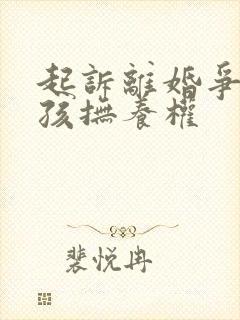 起訴離婚爭
孩撫養權
裴悅冉